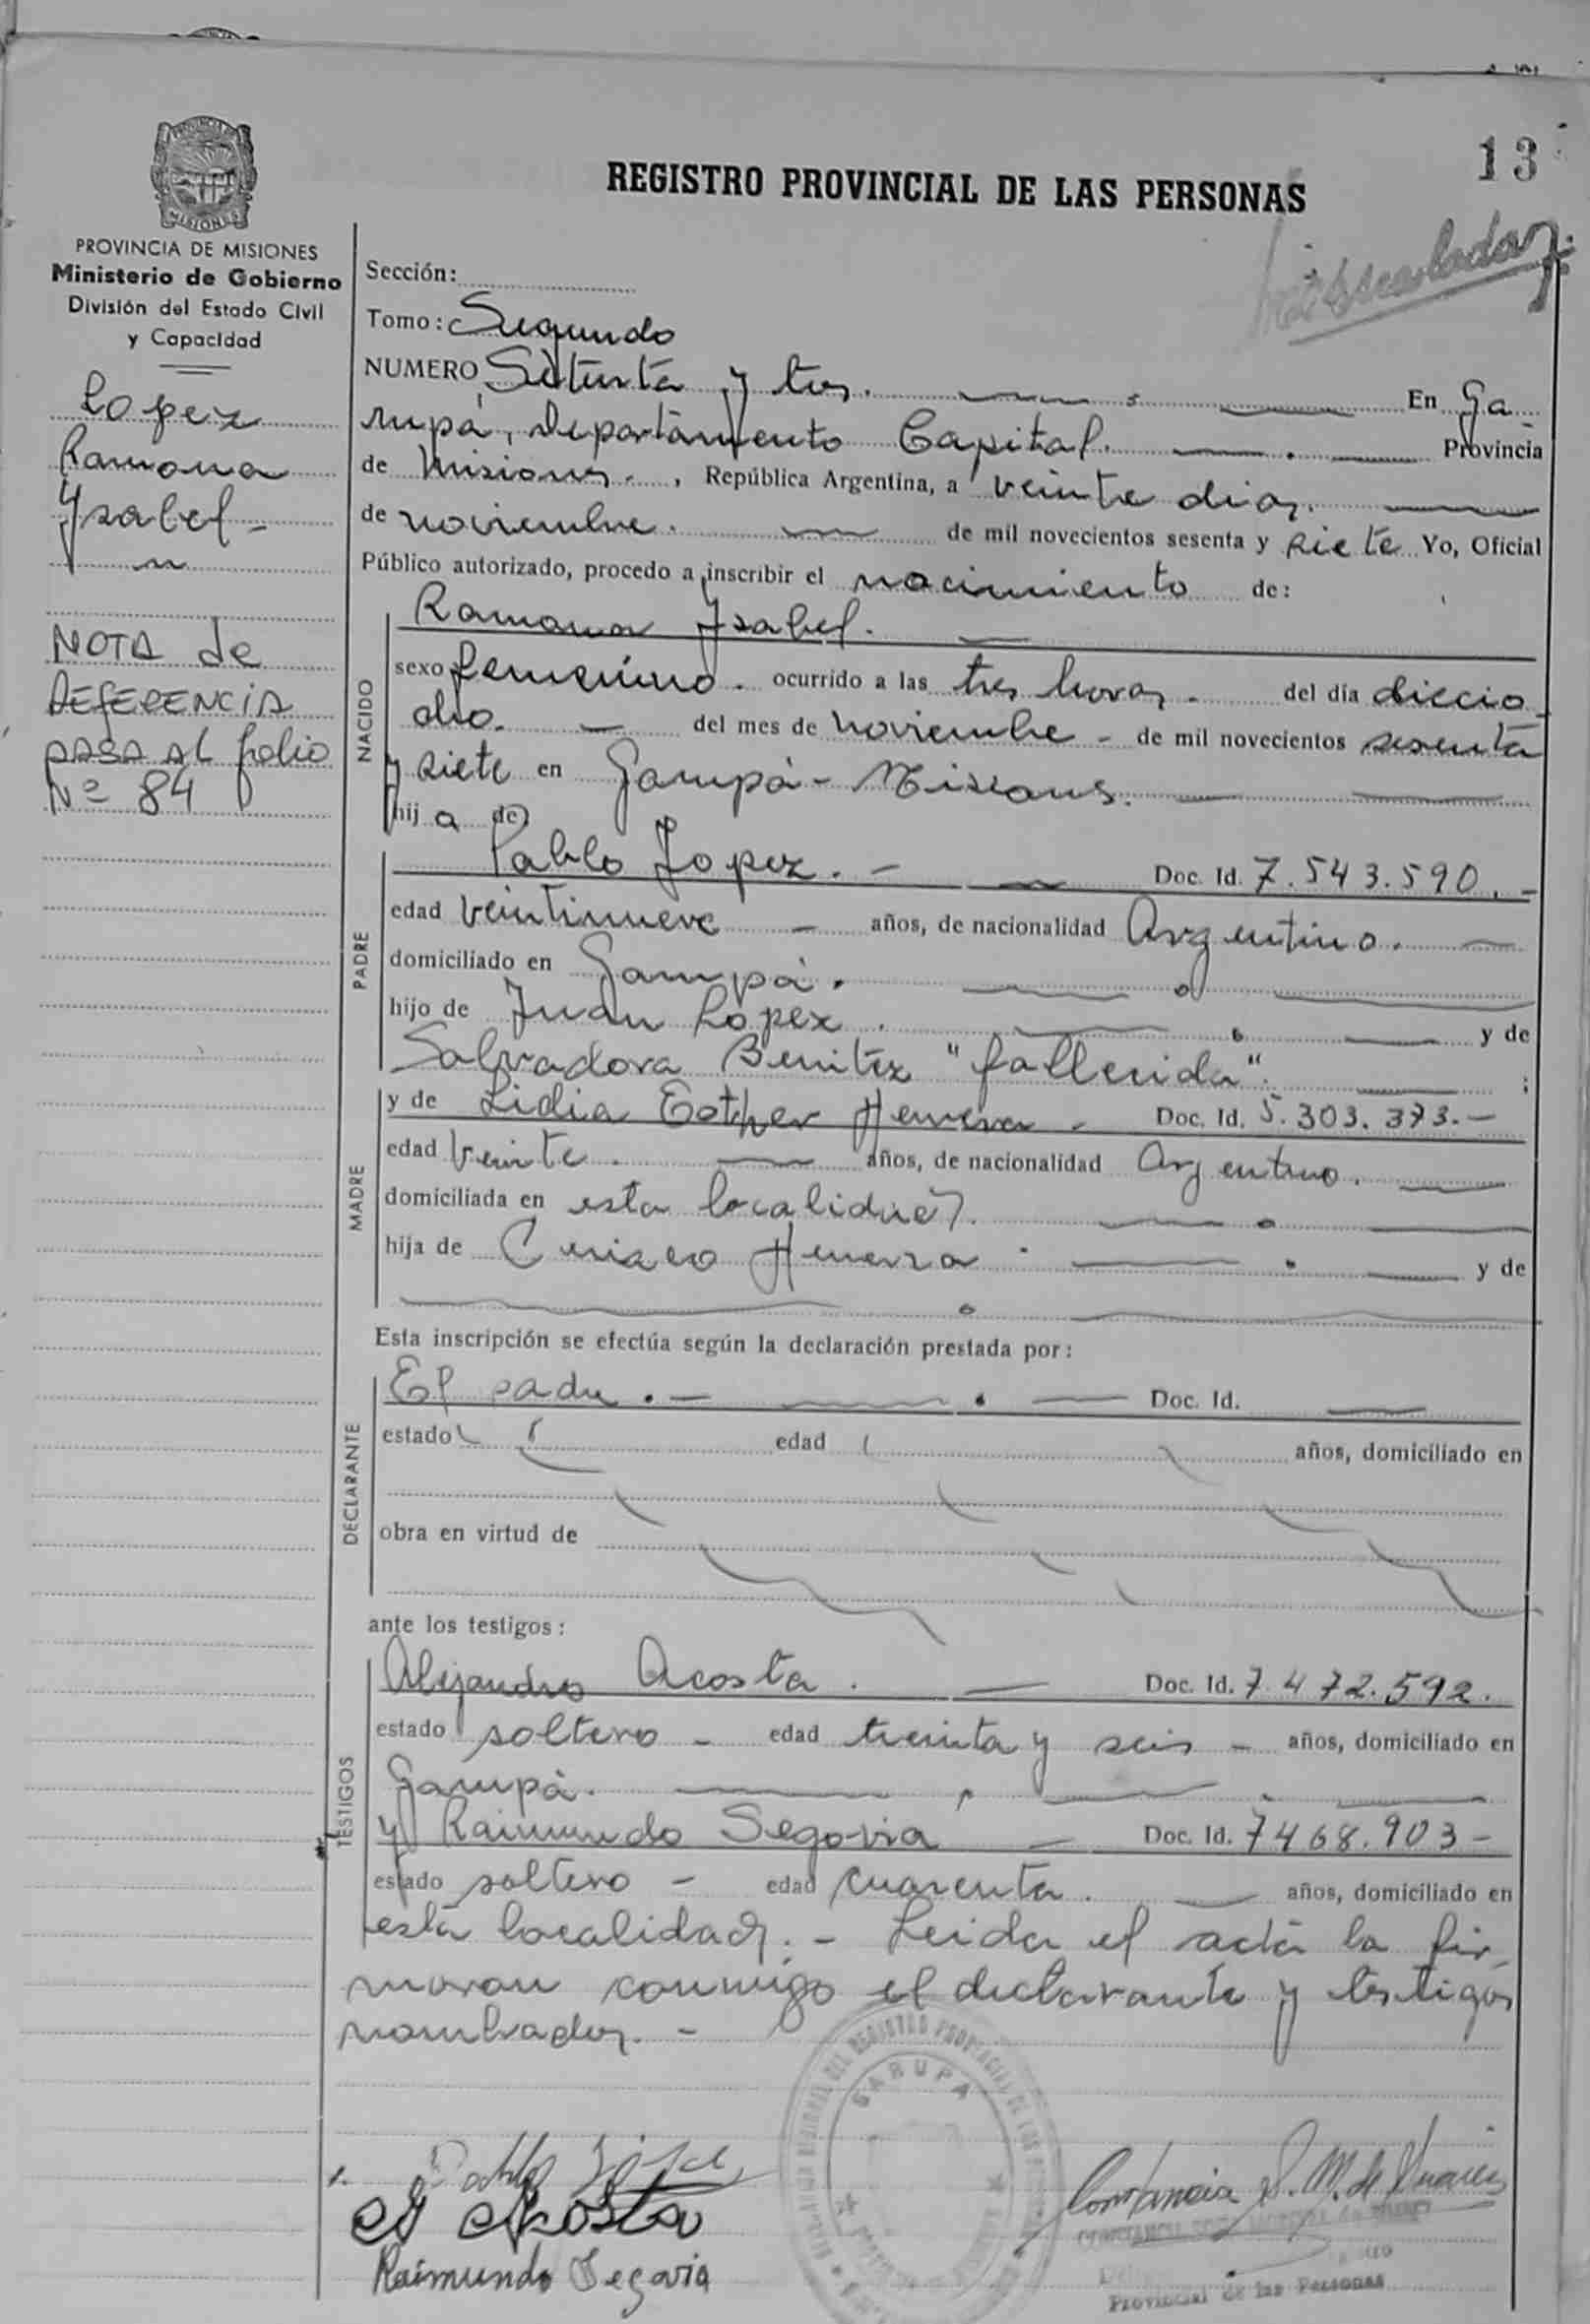 13
REGISTRO PROVINCIAL DE LAS PERSONAS
PROVINCIA DE MISIONES
Ministerio de Gobierno
División del Estado Civil
y Capacidad
Lopez
Ramona
Ysabel -
NOTA de
REFERENCIA
PASA AL folio
Nº 84
Sección:
Tomo: Segundo
NUMERO Setenta y tres. En Ga
rupá, Departamento Capital. Provincia
de Misiones. , República Argentina, a veinte dias.
de noviembre. de mil novecientos sesenta y siete Yo, Oficial
Público autorizado, procedo a inscribir el nacimiento de:
NACIDO
Ramona Ysabel.
sexo femenino. ocurrido a las tres horas. del día diecio
cho. del mes de noviembre - de mil novecientos sesenta
y siete en Garupá - Misiones.
hij a de
PADRE
Pablo Lopez. - Doc. Id. 7.543.590. -
edad veintinueve - años, de nacionalidad Argentino.
domiciliado en Garupá.
hijo de Juan Lopez. y de
Salvadora Benitez "fallecida". ;
MADRE
y de Lidia Esther Herrera - Doc. Id. 5.303.373. -
edad veinte. años, de nacionalidad Argentina.
domiciliada en esta localidad.
hija de Ciriaco Herrera. y de
Esta inscripción se efectúa según la declaración prestada por:
DECLARANTE
El padre. - Doc. Id.
estado edad años, domiciliado en
obra en virtud de
ante los testigos:
TESTIGOS
Alejandro Acosta. Doc. Id. 7.472.592.
estado soltero - edad treinta y seis - años, domiciliado en
Garupá.
y Raimundo Segovia Doc. Id. 7468.903 -
estado soltero - edad cuarenta. años, domiciliado en
esta localidad. - Leida el acta la fir
maran conmigo el declarante y testigos
nombrados. -
GARUPA
Pablo
A Acosta
Raimundo Segovia
Constancia S. M. de
Provincial de las Personas